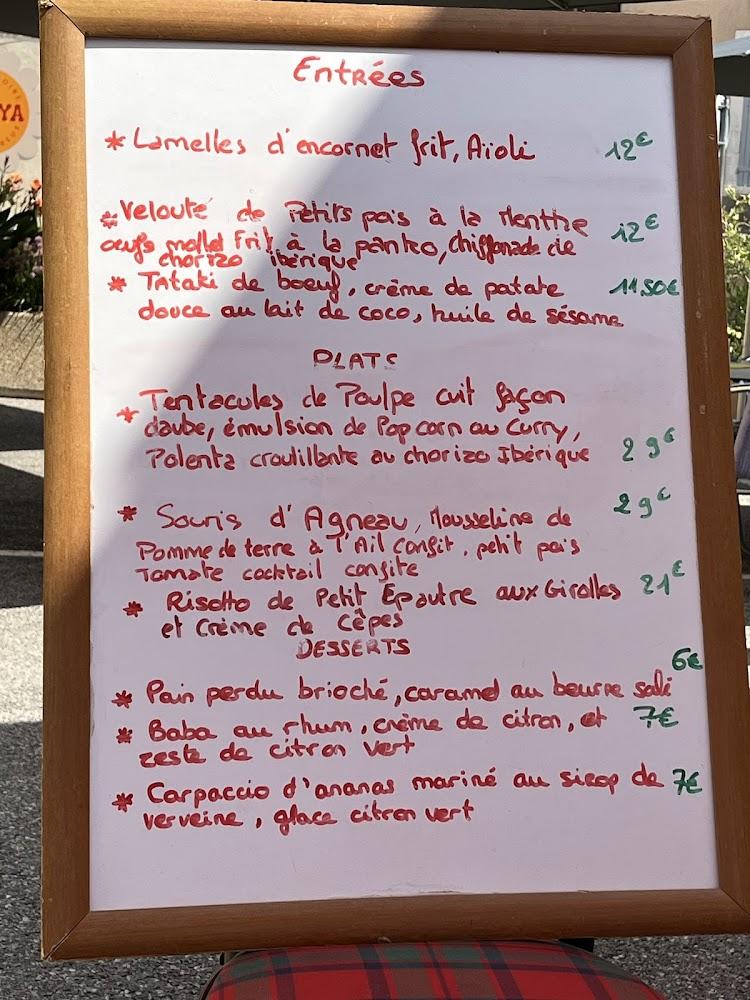 YA
Entrées
* Lamelles d'encornet frit, Aïoli 12€
* Velouté de Petits pois à la Menthe
oeufs mollet Frit à la panko, chiffonade de 12€
chorizo ibérique
* Tataki de boeuf, crème de patate 11.50€
douce au lait de coco, huile de sésame
PLATS
* Tentacules de Poulpe cuit façon
daube, émulsion de Pop corn au Curry,
Polenta croutillante au chorizo Ibérique 29€
* Souris d'Agneau, Mousseline de 29€
Pomme de terre à l'Ail Confit, petit pois
Tomate cocktail confite
* Risotto de Petit Epautre aux Girolles 21€
et Crème de Cêpes
DESSERTS
6€
* Pain perdu brioché, caramel au beurre salé
* Baba au rhum, crème de citron, et 7€
zeste de citron vert
* Carpaccio d'ananas mariné au sirop de 7€
verveine, glace citron vert